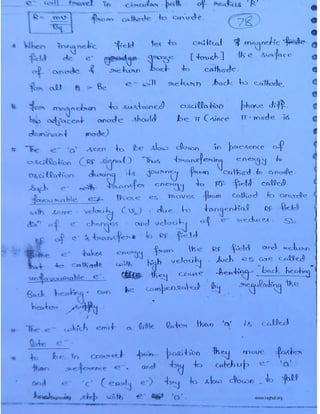 e⁻ will travel in circular path of radius 'R'
R = mv/Bq from cathode to anode.
78
* When magnetic field Ber to critical magnetic
field de e⁻ [touch] the surface
of anode & return back to cathode.
for all B > Bc e⁻ will return back to cathode.
* for magnetron to sustained oscillation phase diff.
b/w adjacent anode should be π (since π-mode is
dominant mode)
* The e⁻ 'a' seen to be slow down in presence of
oscillation (RF signal) Thus transferring energy to
oscillation during its journey from cathod to anode.
Such e⁻ transfer energy to RF field called
favourable e⁻ these es moves from cathod to anode
with some velocity due to tangential RF field
dir of e⁻ changes and velocity of e⁻ reduces. So
of e⁻s transfer to RF field
* The e⁻ takes energy from the RF field and return
to cathode with high velocity. Such es are called
unfavourable e⁻. they cause heating "back heating"
Back heating can be compensated by regulating the
heater supply
* The e⁻ which emit a little later than 'a' is called
late e⁻
* to be in correct position they move faster
than reference e⁻ and try to catchup e⁻ 'a'
and e⁻ 'c' (early e⁻) try to slow down to fall
step with e⁻ 'a'.
www.raghul.org